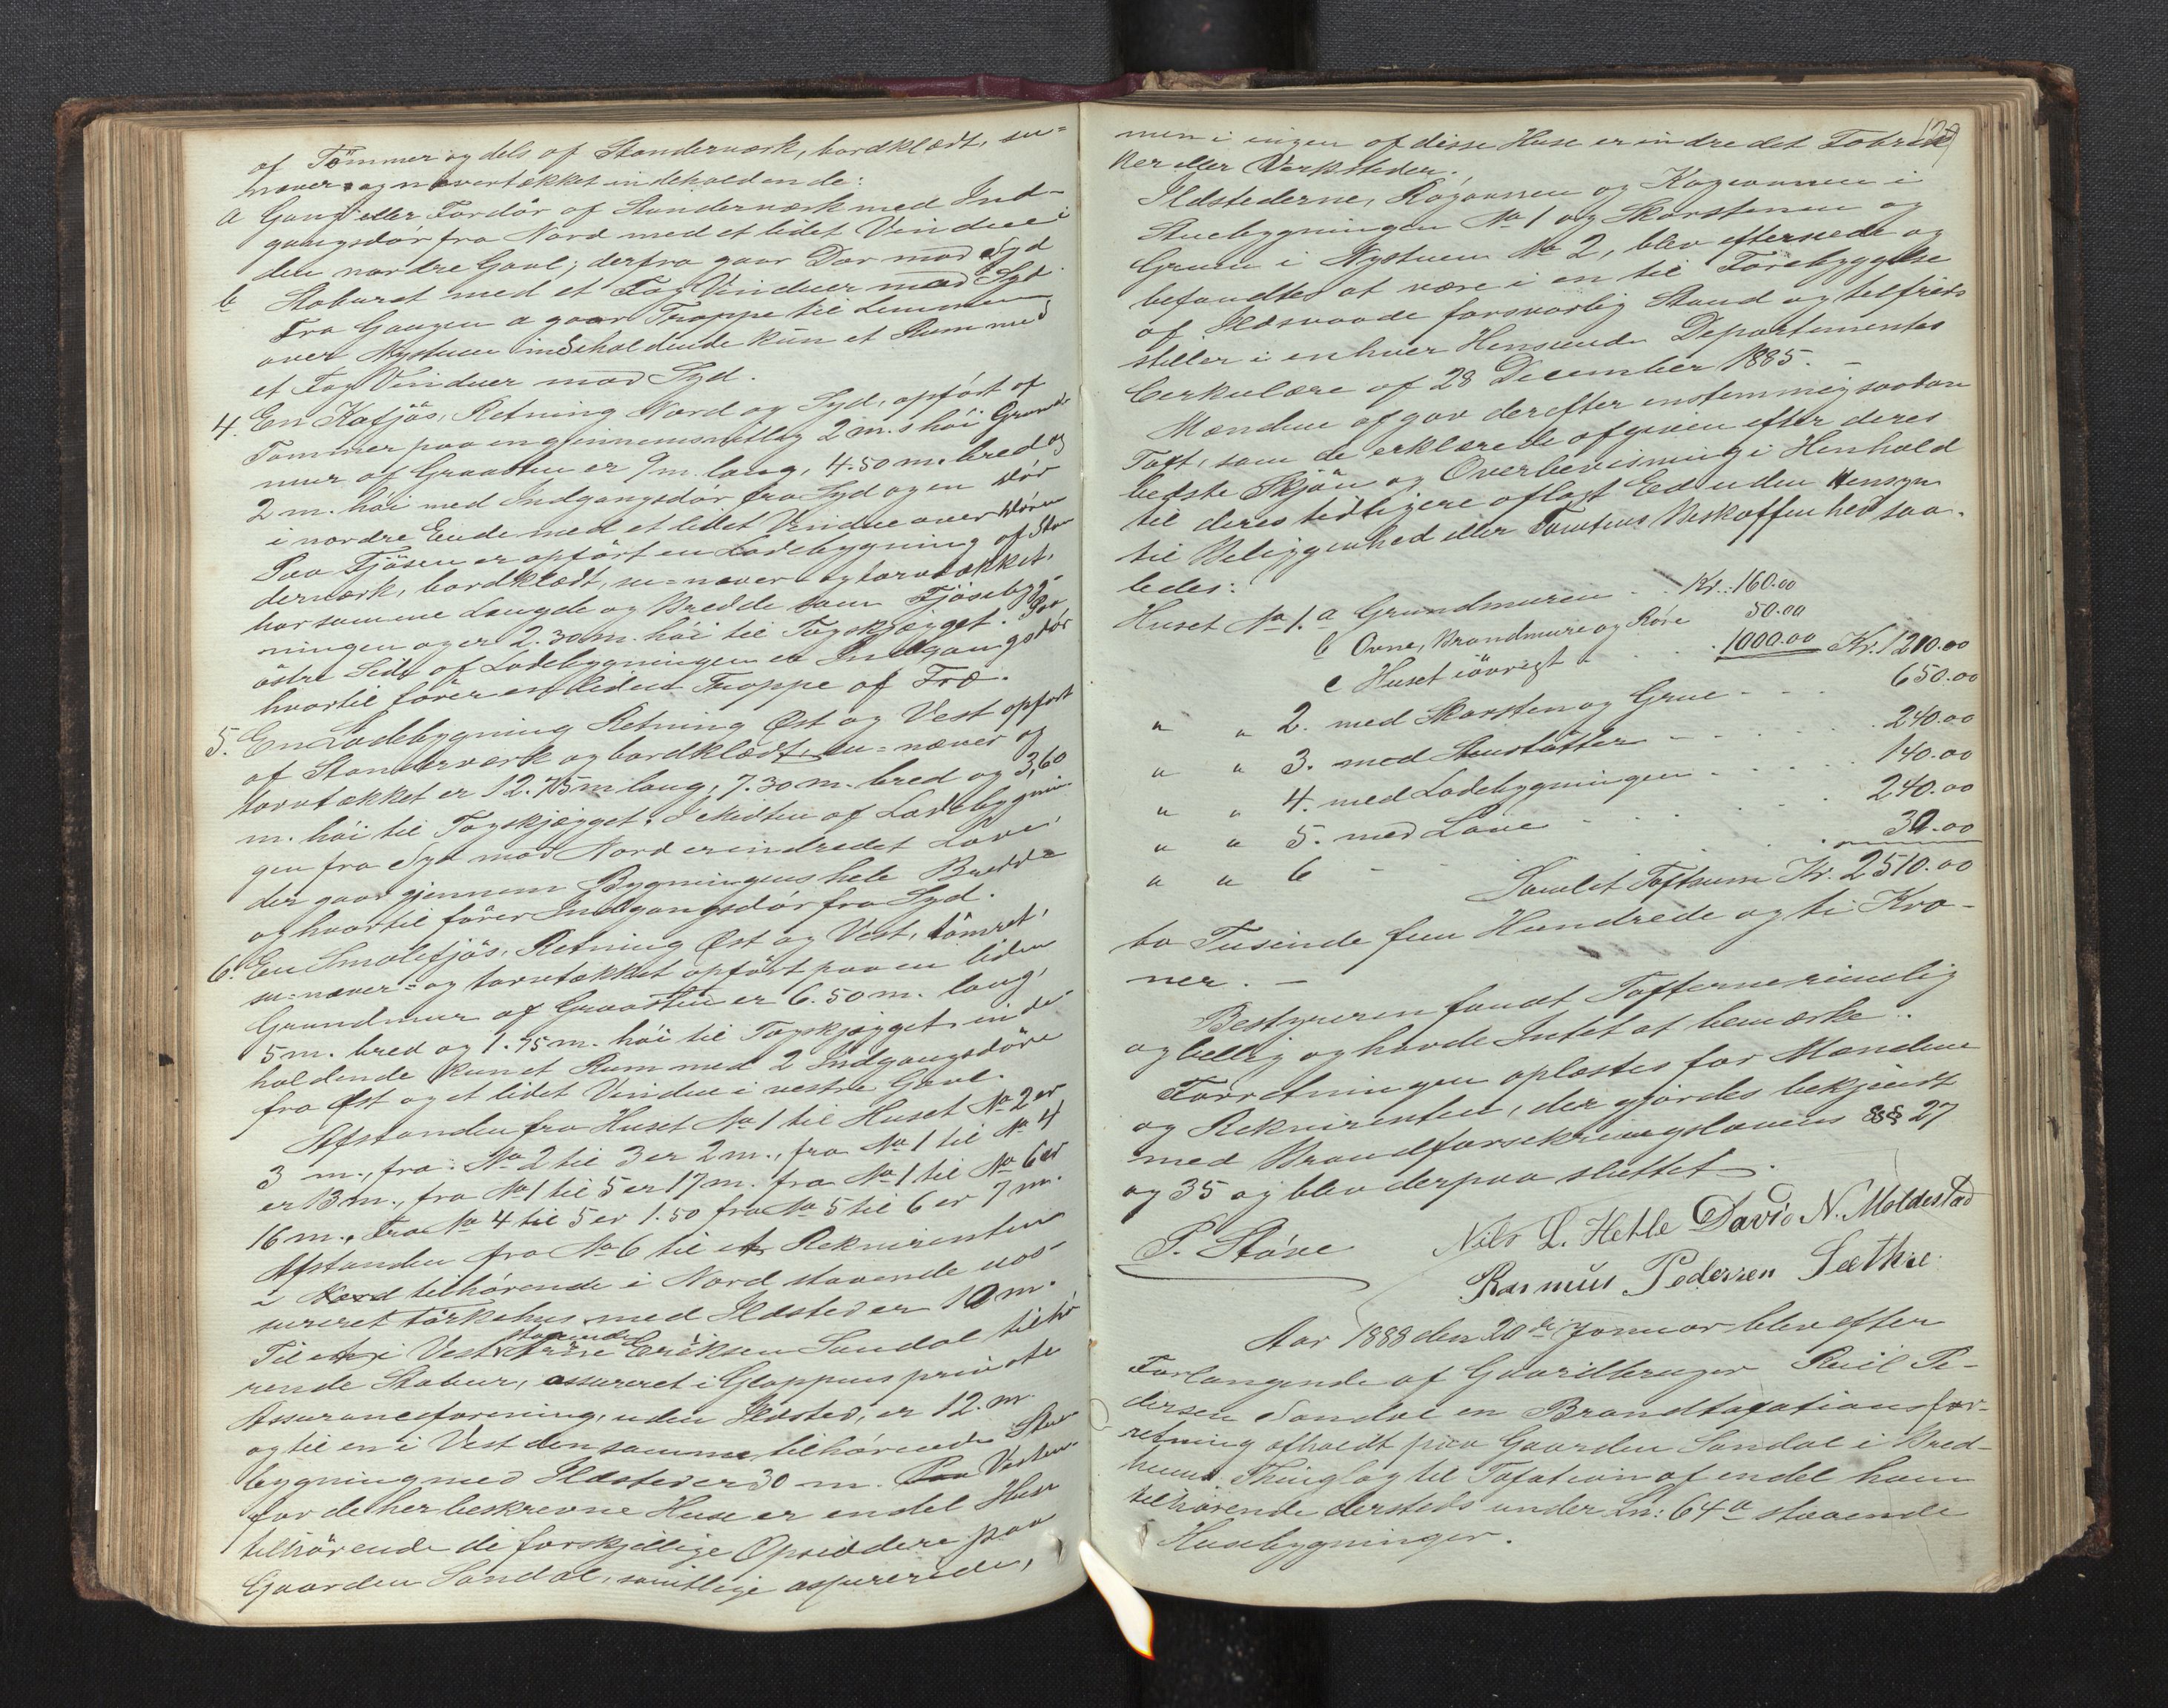 af Tømmer og dels af Standerværk, bordklædt, su=
næver= og nævertækket indeholdende:
a Gang eller Fordör af Standerværk med Ind-
gangsdör fra Nord med et lidet Vindue i
den nordre Gavl; derfra gaar Dör mod Syd
b Staburet med et Fag Vinduer mod Syd.
Fra Gangen a gaar Trappe til Lemmen
over Nystuen indeholdende kun et Rum med
et Fag Vinduer mod Syd.
4. En Kofjös, Retning Nord og Syd, opfört af
Tømmer paa en gjennemsnitlig 2 m.s höi Grund-
mur af Graasten er 9 m. lang, 4.50 m. bred og
2 m. höi med Indgangsdör fra Syd og en Dör
i nordre Ende med et lidet Vindue over Dören
Paa Fjösen er opfört en Ladebygning af Stan
derværk, bordklædt, su=næver= og torvtækket,
har samme Længde og Bredde som Fjösbyg-
ningen og er 2.30 m. höi til Tagskjægget. Paa
östre Side af Ladebygningen er Indgangsdör
hvortil förer en liden Trappe af Træ.
5. En Ladebygning Retning Øst og Vest opfört
af Standerværk og bordklædt, su=næver og
torvtækket er 12.75 m lang, 7.30 m. bred og 3,60
m. höi til Tagskjægget. I Midten af Ladebygnin
gen fra Syd mod Nord er indredet Lave,
der gaar gjennem Bygningens hele Bredde
og hvortil förer Indgangsdör fra Syd.
6. En Smalefjös, Retning Øst og Vest, tömret,
su=næver= og torvtækket opfört paa en liden
Grundmur af Graasten er 6.50 m. lang,
5 m. bred og 1.75 m. höi til Tagskjægget, inde-
holdende kun et Rum med 2 Indgangsdöre
fra Øst og et lidet Vindue i vestre Gavl.
Afstanden fra Huset No 1 til Huset No 2 er
3 m., fra No 2 til 3 er 2 m., fra No 1 til No 4
er 13 m., fra No 1 til 5 er 17 m. fra No 1 til No 6 er
16 m., Fra No 4 til 5 er 1.50 fra No 5 til 6 er 7 m.
Afstanden fra No 6 til et Rekvirenten
i Nord tilhörende i Nord staaende uas-
sureret Törkehus med Ildsted er 10 m.
Til et i Vest staaende Arne Eriksen Sandal tilhö
rende Stabur, assureret i Gloppens private
Assuranceforening, uden Ildsted, er 12. m
og til en i Vest den samme tilhörende Stue
bygning med Ildsted er 30 m. Paa Vesten
for de her beskrevne Huse er endel Huse
tilhörende de forskjellige Opsiddere paa
Gaarden Sandal, samtlige assurerede,
129
men i ingen af disse Huse er indredet Fabrik
ker eller Verksteder.
Ildstederne, Rogovnen og Kogeovnen i
Stuebygningen No 1 og Skorstenen og
Gruen i Nystuen No 2, blev efterseede og
befandtes at være i en til Forebyggelse
af Ildsvaade forsvarlig Stand og tilfreds
stiller i enhver Henseende Departementets
Cerkulære af 28 December 1885. –
Mændene afgav derefter enstemmig saadan
Taxt, som de erklærede afgiven efter deres
bedste Skjön og Overbevisning i Henhold
til deres tidligere aflagt Ed uden Hensyn
til Beliggenhed eller Tomtens Beskaffenhed saa-
ledes:
Huset No 1. a Grundmuren . . Kr.: 160.00
b Ovne, Brandmure og Röre 50.00
c Huset iövrigt . . . 1000.00 Kr. 1210.00
" " 2. med Skorsten og Grue - - - 650.00
" " 3. med Stenstötter - - - 240.00
" " 4. med Ladebygningen . . . . 140.00
" " 5. med Lave . . . . 240.00
" " 6 - . . . 30.00
Samlet Taxtsum Kr. 2510.00
to Tusinde fem Hundrede og ti Kro-
ner. –
Bestyreren fandt Taxterne rimelig
og billig og havde Intet at bemærke.
Forretningen oplæstes for Mændene
og Rekvirenten, der gjordes bekjendt
med Brandforsikringslovens §§ 27
og 35 og blev derpaa sluttet.
P. Stöve Nils L. Hetle David N. Moldestad
Rasmus Pedersen Sæthre
Aar 1888 den 20de Januar blev efter
Forlangende af Gaardbruger Paul Pe-
dersen Sandal en Brandtaxationsfor-
retning afholdt paa Gaarden Sandal i Bred-
heims Thinglag til Taxation af endel ham
tilhörende dersteds under Ln: 64 a staaende
Husebygninger.